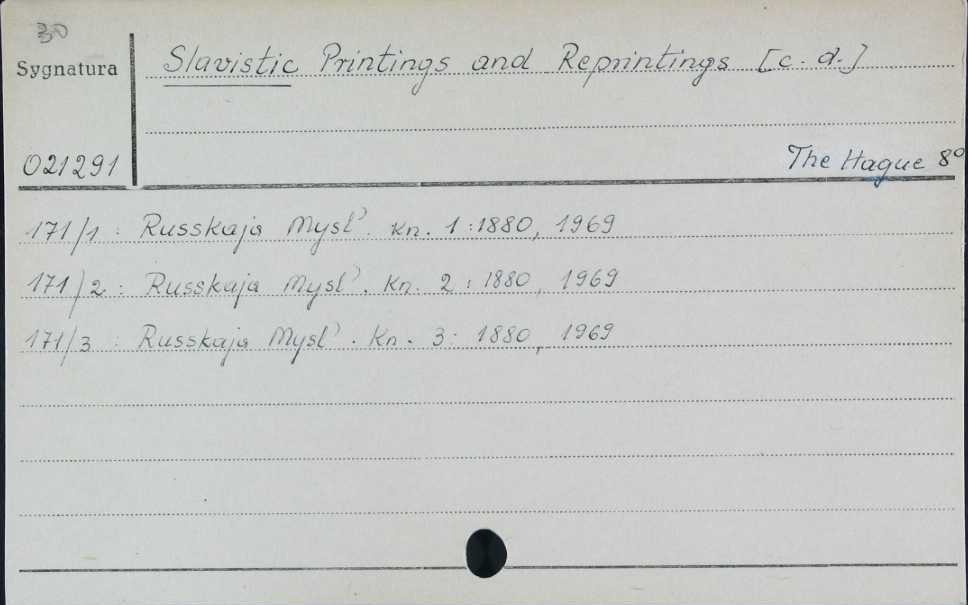 30
Sygnatura
Slavistic Printings and Reprintings [c. d.]
021291
The Hague 8°
171/1 : Russkaja Mysl'. kn. 1 : 1880, 1969
171/2 : Russkaja Mysl'. Kn. 2 : 1880, 1969
171/3 : Russkaja Mysl'. Kn. 3 : 1880, 1969